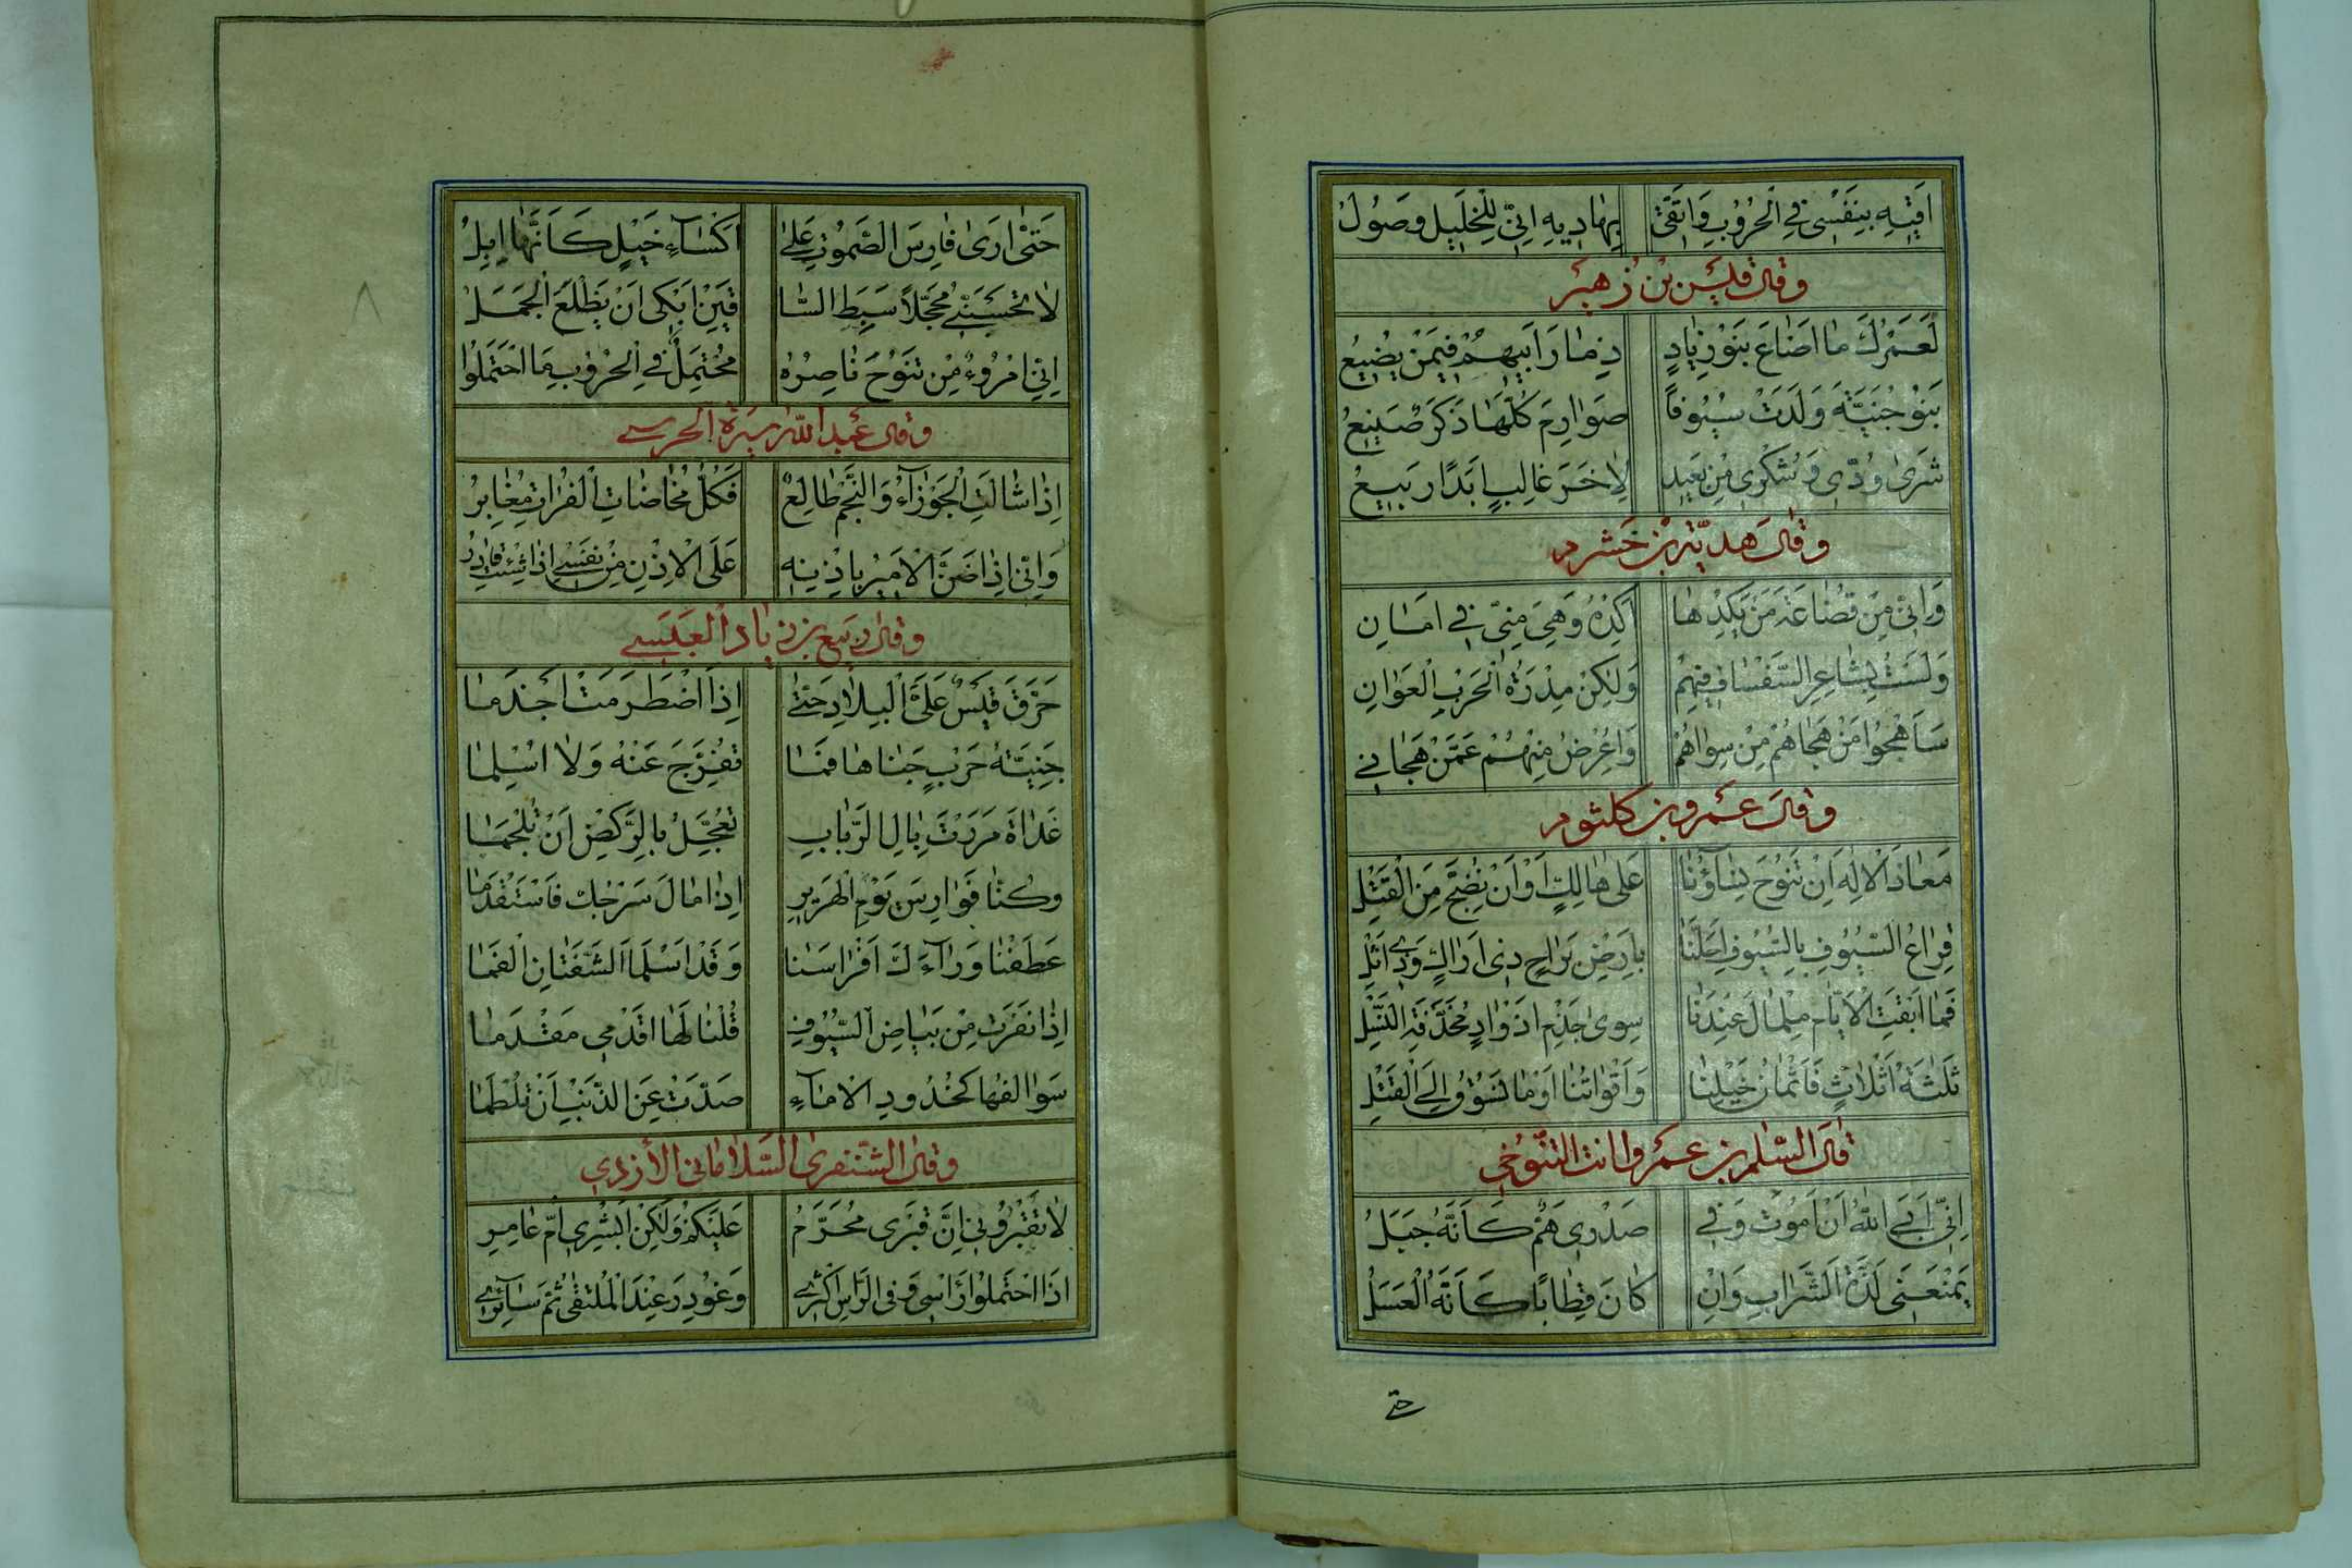 اَقِيْهِ بِنَفْسِى فِي الْحُرُوْبِ وَاتَّقِىْ بِهَادِيهِ اِنِّىْ لِلْخَلِيلِ وَصُولُ
وقال قيس بن زهير
لَعَمْرُكَ مَا اَضَاعَ بَنُوْ زِيَادٍ ذِمَارَ اَبِيهِمُ فِيمَنْ يُضِيْعُ
بَنُوْ جِنِّيَّةٍ وَلَدَتْ سُيُوْفًا صَوَارِمَ كُلُّهَا ذَكَرٌ صَنِيعُ
شَرَى وُدِّى وَشُكْرِى مِنْ بَعِيدٍ لِاٰخَرَ غَالِبٍ اَبَدًا رَبِيعُ
وقال هدبة بن خشرم
وَاِنِّى مِنْ قُضَاعَةَ مَنْ يَكِدْهَا اَكِدْهُ وَهِىَ مِنِّى فِي اَمَانِ
وَلَسْتُ بِشَاعِرِ السَّفْسَافِ فِيْهِمْ وَلٰكِنْ مِدْرَهُ الْحَرْبِ الْعَوَانِ
سَاَهْجُوْا مَنْ هَجَاهُمْ مِنْ سِوَاهُمْ وَاُعْرِضُ مِنْهُمُ عَمَّنْ هَجَانِي
وقال عمرو بن كلثوم
مَعَاذَ الْاِلٰهِ اَنْ تَنُوْحَ نِسَاؤُنَا عَلٰى هَالِكٍ اَوْ اَنْ نَضِجَّ مِنَ الْقَتْلِ
قِرَاعُ السُّيُوْفِ بِالسُّيُوْفِ اَحَلَّنَا بِاَرْضٍ بَرَاحٍ ذِى اَرَاكٍ وَذِي اَثْلِ
فَمَا اَبْقَتِ الْاَيَّامُ مِلْمَالِ عِنْدَنَا سِوٰى جِذْمِ اَذْوَادٍ مُحَذَّفَةِ النَّسْلِ
ثَلٰثَةُ اَثْلَاثٍ فَاَثْمَانُ خَيْلِنَا وَاَقْوَاتُنَا اَوْ مَا نَسُوْقُ اِلَى الْقَتْلِ
قال السلم بن عمرو انت التنوخي
اِنِّىْ اَبَى اللّٰهُ اَنْ اَمُوْتَ وَفِي صَدْرِى هَمٌّ كَاَنَّهُ جَبَلُ
يَمْنَعُنِى لَذَّةَ الشَّرَابِ وَاِنْ كَانَ قِطَابًا كَاَنَّهُ الْعَسَلُ
حتى
حَتّٰى اَرٰى فَارِسَ الصَّمُوْتِ عَلٰى اَكْسَاۤءِ خَيْلٍ كَاَنَّهَا اِبِلُ
لَا تَحْسَبَنِّي مُحَجَّلًا سَبِطَ السَّا قَيْنِ اَبْكِى اَنْ يَظْلَعَ الْجَمَلُ
اِنِّى امْرُوءٌ مِنْ تَنُوْخَ نَاصِرُهُ مُحْتَمِلٌ فِي الْحُرُوْبِ مَا احْتَمَلُوْا
وقال عبد الله سبرة الحرسي
اِذَا شَالَتِ الْجَوْزَاۤءُ وَالنَّجْمُ طَالِعٌ فَكُلُّ مَخَاضَاتِ الْفُرَاتِ مَعَابِرُ
وَاِنِّى اِذَا ضَنَّ الْاَمِيْرُ بِاِذْنِهِ عَلَى الْاِذْنِ مِنْ نَفْسِي اِذَا شِئْتُ قَادِرُ
وقال ربيع بن زياد العبسي
حَرَّقَ قَيْسٌ عَلَىَّ الْبِلَادَ حَتّٰى اِذَا اضْطَرَمَتْ اَجْذَمَا
جَنِيَّةُ حَرْبٍ جَنَاهَا فَمَا تُفُرِّجَ عَنْهُ وَلَا اُسْلِمَا
غَدَاةَ مَرَرْتَ بِاٰلِ الرَّبَابِ تُعَجِّلُ بِالرَّكْضِ اَنْ تُلْجِمَا
وَكُنَّا فَوَارِسَ يَوْمِ الْهَرِيْرِ اِذَا مَالَ سَرْجُكَ فَاسْتَقْدَمَا
عَطَفْنَا وَرَاۤءَكَ اَفْرَاسَنَا وَقَدْ اَسْلَمَ الشَّفَتَانِ الْفَمَا
اِذَا نَفَرَتْ مِنْ بَيَاضِ السُّيُوْفِ قُلْنَا لَهَا اقْدُمِي مَقْدَمَا
سَوَالِفُهَا كَخُدُودِ الْاِمَاۤءِ صَدَّتْ عَنِ الذَّنْبِ اَنْ تُلْطَمَا
وقال الشنفرى السلاماني الأزدي
لَا تَقْبُرُوْنِي اِنَّ قَبْرِى مُحَرَّمُ عَلَيْكُمْ وَلٰكِنْ اَبْشِرِى اُمَّ عَامِرِ
اِذَا احْتَمَلُوْا رَاْسِى وَفِى الرَّاْسِ اَكْثَرِي وَغُوْدِرَ عِنْدَ الْمُلْتَقٰى ثُمَّ سَاۤئِرِي